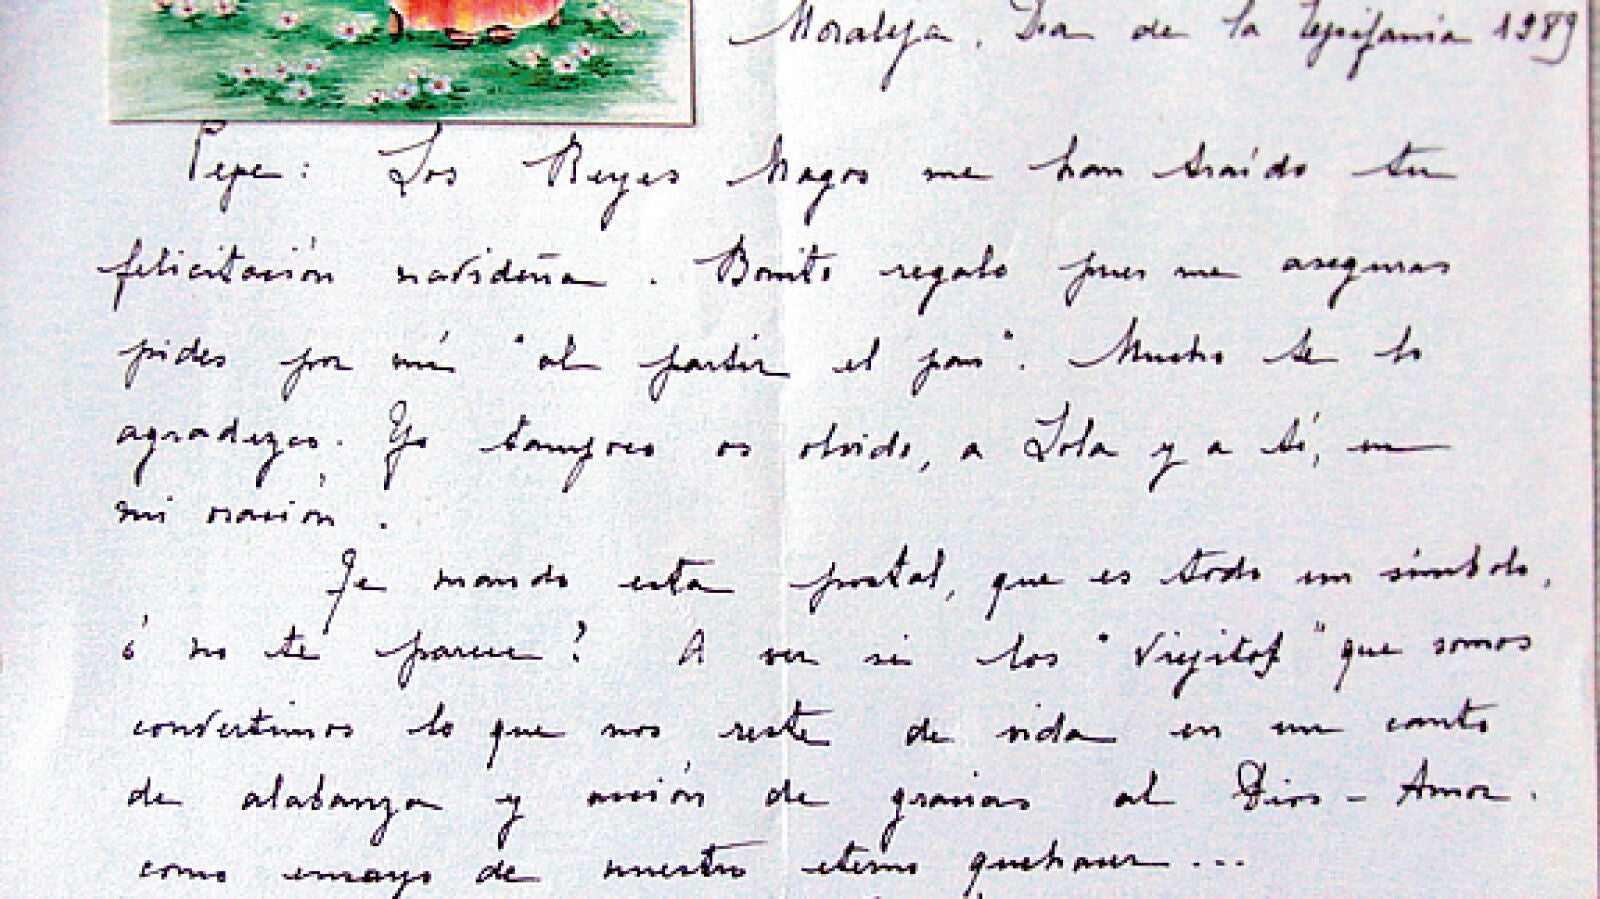 Moraleja, Día de la Epifanía 1989
Pepe: Los Reyes Magos me han traído tu
felicitación navideña. Bonito regalo pues me aseguras
pides por mí "al partir el pan". Mucho te lo
agradezco. Yo tampoco os olvido, a Lola y a tí, en
mi oración.
Te mando esta postal, que es todo un símbolo,
¿no te parece? A ver si los "viejitos" que somos
convertimos lo que nos reste de vida en un canto
de alabanza y acción de gracias al Dios-Amor.
como ensayo de nuestro eterno quehacer...